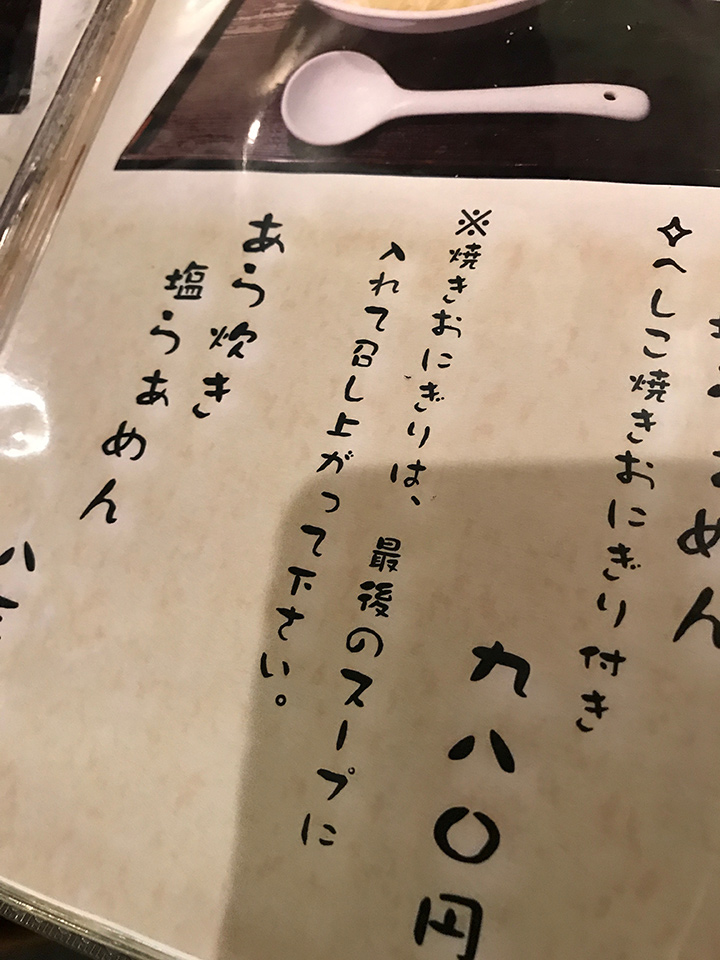 めん
✧へしこ焼きおにぎり付き
九八〇円
※焼きおにぎりは、最後のスープに
入れて召し上がって下さい。
あら炊き
塩らぁめん
八